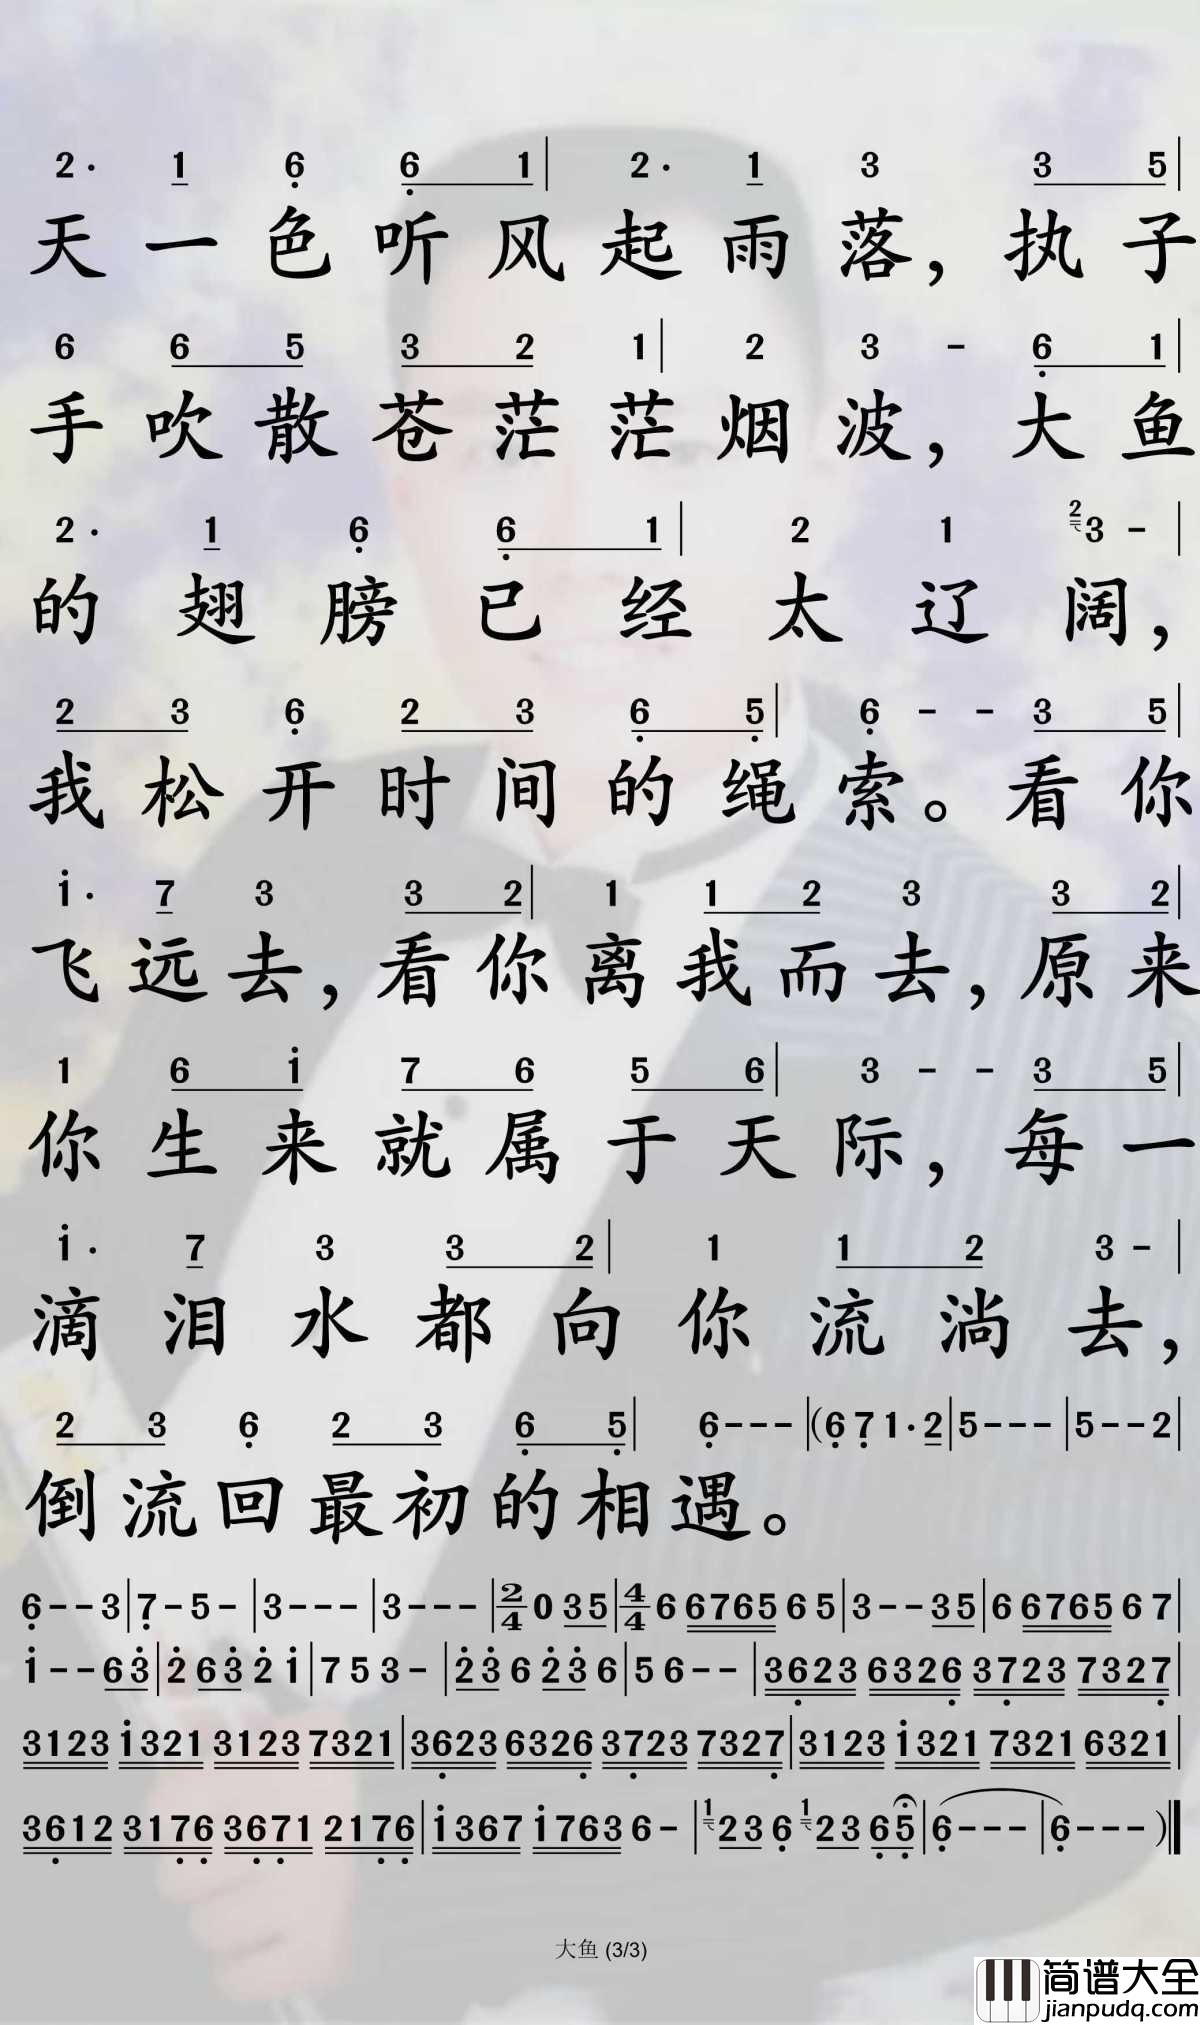 2· 1 6 6 1| 2· 1 3 3 5|
天一色听风起雨落，执子
6 6 5 3 2 1| 2 3 - 6 1|
手吹散苍茫茫烟波，大鱼
2· 1 6 6 1| 2 1 2 3 -|
的翅膀已经太辽阔，
2 3 6 2 3 6 5| 6 - - 3 5|
我松开时间的绳索。看你
1· 7 3 3 2| 1 1 2 3 3 2|
飞远去，看你离我而去，原来
1 6 1 7 6 5 6| 3 - - 3 5|
你生来就属于天际，每一
1· 7 3 3 2| 1 1 2 3 -|
滴泪水都向你流淌去，
2 3 6 2 3 6 5| 6---|(6 7 1·2|5---|5--2|
倒流回最初的相遇。
6--3|7-5-|3---|3---|2/4 0 35|4/4 6 6765 6 5|3--35|6 6765 6 7|
1--63|2 63 2 1|7 5 3-|23 6 23 6|5 6--|3623 6326 3723 7327|
3123 1321 3123 7321|3623 6326 3723 7327|3123 1321 7321 6321|
3612 3176 3671 2176|1367 1763 6-|1 23 6 1 23 65|6---|6---)
大鱼 (3/3)
简谱大全
jianpudq.com